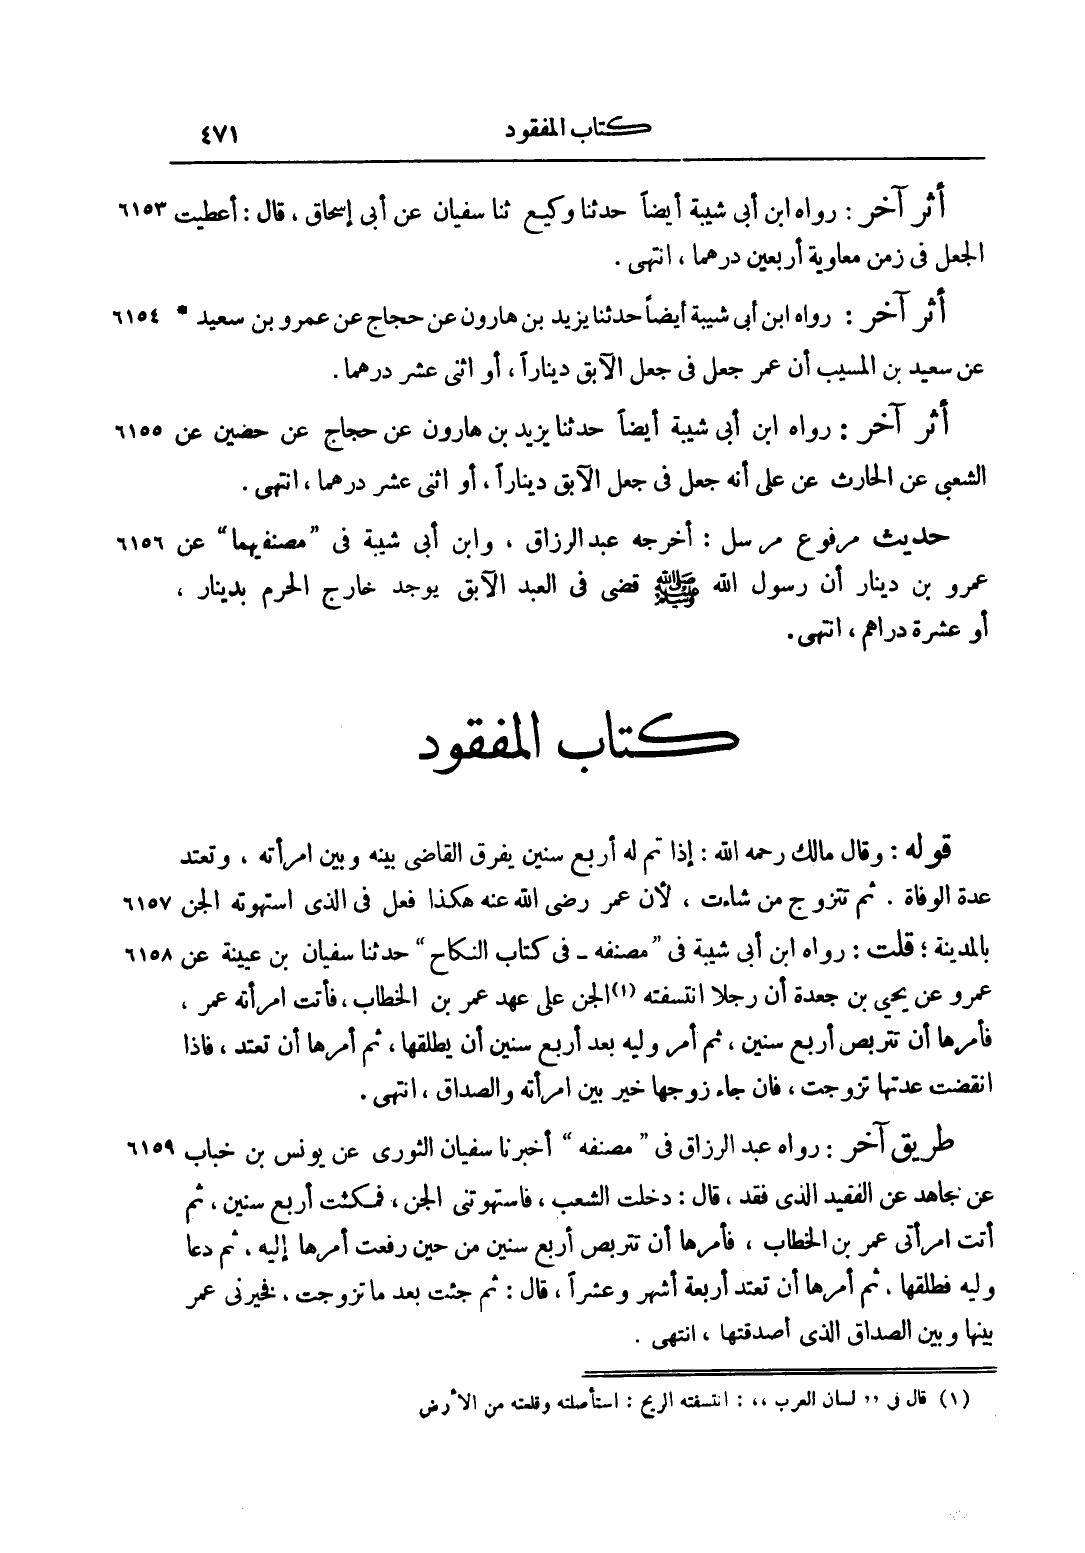 كتاب المفقود ٤٧١
أثر آخر : رواه ابن أبى شيبة أيضاً حدثنا وكيع ثنا سفيان عن أبى إسحاق ، قال : أعطيت ٦١٥٣
الجعل فى زمن معاوية أربعين درهما ، انتهى .
أثر آخر : رواه ابن أبى شيبة أيضاً حدثنا يزيد بن هارون عن حجاج عن عمرو بن سعيد * ٦١٥٤
عن سعيد بن المسيب أن عمر جعل فى جعل الآبق ديناراً ، أو اثنى عشر درهما .
أثر آخر : رواه ابن أبى شيبة أيضاً حدثنا يزيد بن هارون عن حجاج عن حضين عن ٦١٥٥
الشعبى عن الحارث عن على أنه جعل فى جعل الآبق ديناراً ، أو اثنى عشر درهما ، انتهى .
حديث مرفوع مرسل : أخرجه عبد الرزاق ، وابن أبى شيبة فى ”مصنفيهما“ عن ٦١٥٦
عمرو بن دينار أن رسول الله ﷺ قضى فى العبد الآبق يوجد خارج الحرم بدينار ،
أو عشرة دراهم ، انتهى .
كتاب المفقود
قوله : وقال مالك رحمه الله : إذا تم له أربع سنين يفرق القاضى بينه وبين امرأته ، وتعتد
عدة الوفاة . ثم تتزوج من شاءت ، لأن عمر رضى الله عنه هكذا فعل فى الذى استهوته الجن ٦١٥٧
بالمدينة ؛ قلت : رواه ابن أبى شيبة فى ”مصنفه ـ فى كتاب النكاح“ حدثنا سفيان بن عيينة عن ٦١٥٨
عمرو عن يحيى بن جعدة أن رجلا انتسفته (١) الجن على عهد عمر بن الخطاب ، فأتت امرأته عمر ،
فأمرها أن تتربص أربع سنين ، ثم أمر وليه بعد أربع سنين أن يطلقها ، ثم أمرها أن تعتد ، فاذا
انقضت عدتها تزوجت ، فان جاء زوجها خير بين امرأته والصداق ، انتهى .
طريق آخر : رواه عبد الرزاق فى ” مصنفه “ أخبرنا سفيان الثورى عن يونس بن خباب ٦١٥٩
عن مجاهد عن الفقيد الذى فقد ، قال : دخلت الشعب ، فاستهوتنى الجن ، فمكثت أربع سنين ، ثم
أتت امرأتى عمر بن الخطاب ، فأمرها أن تتربص أربع سنين من حين رفعت أمرها إليه ، ثم دعا
وليه فطلقها ، ثم أمرها أن تعتد أربعة أشهر وعشراً ، قال : ثم جئت بعد ما تزوجت ، فخيرنى عمر
بينها وبين الصداق الذى أصدقتها ، انتهى .
(١) قال فى ,, لسان العرب ،، : انتسفته الريح : استأصلته وقلعته من الأرض